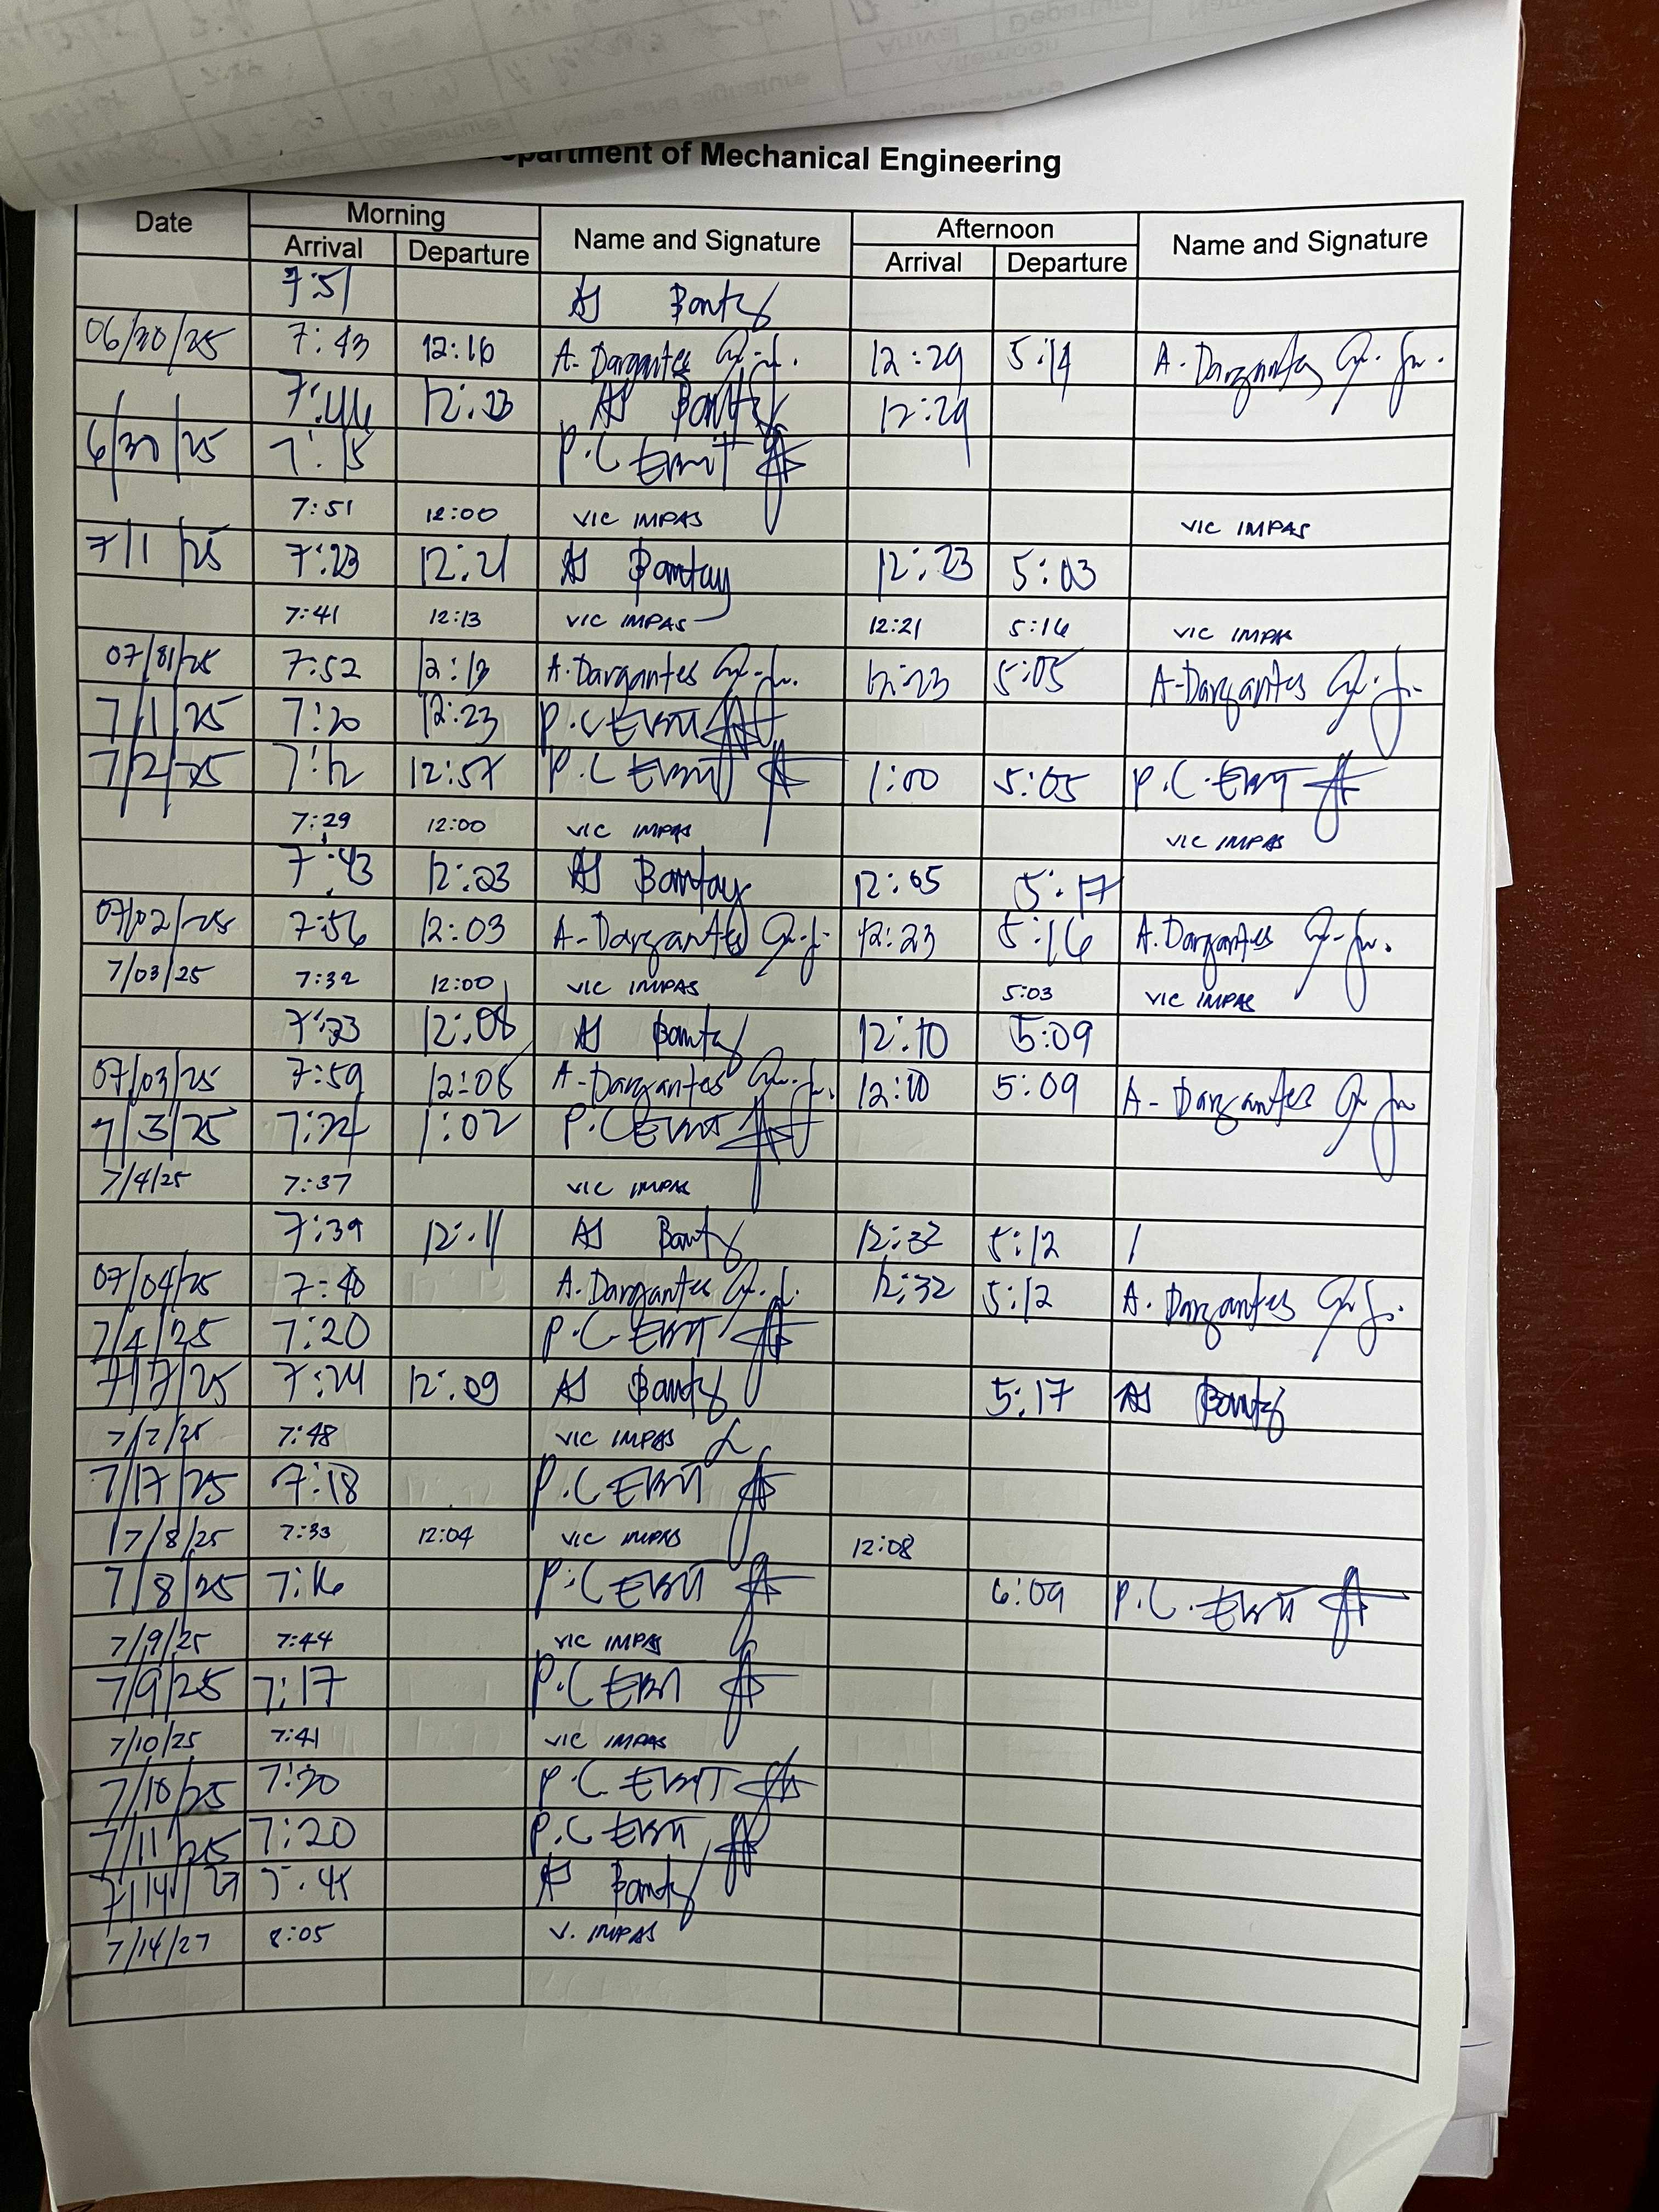 Department of Mechanical Engineering
Date Morning Name and Signature Afternoon Name and Signature
Arrival Departure Arrival Departure
7:51 AJ
06/30/25 7:43 12:16 A. Dargantes 12:29 5:14 A. Dargantes
7:44 12:23 AJ 12:29
6/30/25 7:15 P.C EBIT
7:51 12:00 VIC IMPAS VIC IMPAS
7/1/25 7:23 12:21 AJ Bantay 12:23 5:03
7:41 12:13 VIC IMPAS 12:21 5:16 VIC IMPAS
7:52 12:13 A. Dargantes 12:23 5:05 A-Dargantes
7/1/25 7:20 12:23 P.C EBIT
7/2/25 7:12 P.C EBIT 1:00 5:05 P.C. EBIT
7:29 12:00 VIC IMPAS VIC IMPAS
7:43 12:03 AJ Bantay 12:05 5:17
07/02/25 7:56 12:03 A-Dargantes 12:23 5:16 A. Dargantes
7/03/25 7:32 12:00 VIC IMPAS 5:03 VIC IMPAS
7:23 12:08 AJ 12:10 5:09
07/03/25 7:59 12:08 A-Dargantes 12:10 5:09 A- Dargantes
7/3/25 7:24 1:02 P.C EBIT
7/4/25 7:37 VIC IMPAS
7:39 12:11 AJ 12:32 5:12
07/04/25 7:40 A. Dargantes 12:32 5:12 A. Dargantes
7/4/25 7:20 P.C EBIT
7/7/25 7:24 12:09 AJ 5:17 AJ
7/7/25 7:48 VIC IMPAS
7/17/25 7:18 P.C EBIT
7/8/25 7:33 12:04 VIC IMPAS 12:08
7/8/25 7:16 P.C EBIT 6:09 P.C. EBIT
7/9/25 7:44 VIC IMPAS
7/9/25 7:17 P.C EBIT
7/10/25 7:41 VIC IMPAS
7/10/25 7:30 P.C EBIT
7/11/25 7:20 P.C EBIT
AJ
7/14/27 8:05 V. IMPAS